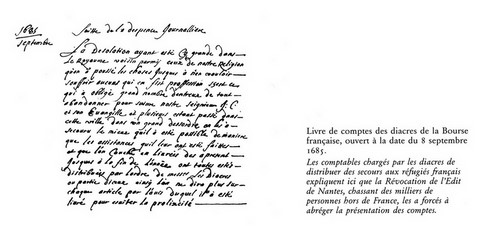 1685
septembre
Suitte de la despence Journalliere
La Desolation ayant esté sy grande dans
le Royaume voisin parmy ceux de nostre Religion
souffrir aucuns qui en fist proffession s'est ce
qui a obligé grand nombre d'entreux de tout
abandonner pour suivre nostre seigneur J. C.
et son Evangille et plusieurs estant passé dans
cette ville dans un grand
secouru le mieux qu'il a esté possible de maniere
que les assistances qui leur ont esté faittes
Jusques à la fin de l'année ont toutes esté
distribuées par l'ordre de mess.rs les Diacres
chaque article par Louis duquel il a esté
livré pour eviter la prolixité
Livre de comptes des diacres de la Bourse
française, ouvert à la date du 8 septembre
1685.
Les comptables chargés par les diacres de
distribuer des secours aux réfugiés français
expliquent ici que la Révocation de l'Edit
de Nantes, chassant des milliers de
personnes hors de France, les a forcés à
abréger la présentation des comptes.